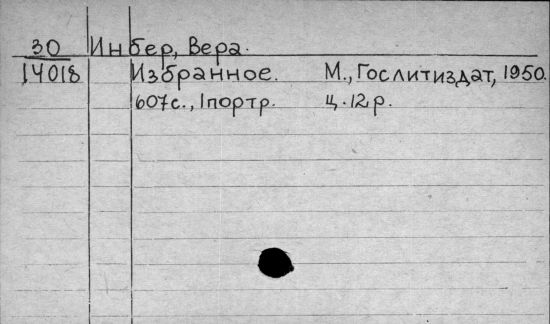 30 Инбер, Вера.
14018 Избранное. М., Гослитиздат, 1950.
607с., 1портр. ц. 12р.